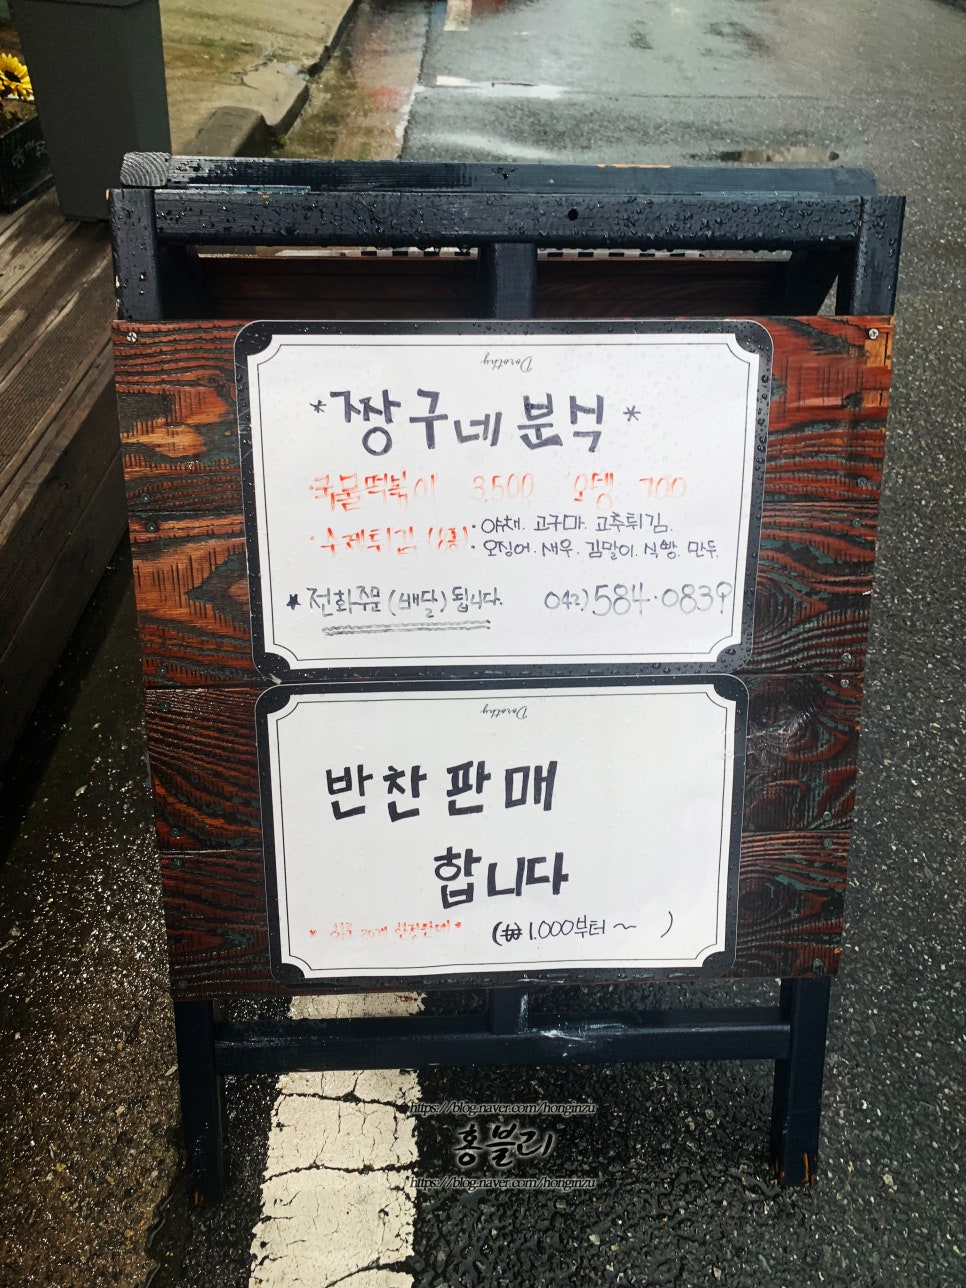 Dorothy
*짱구네 분식*
·국물떡볶이 3,500 / 오뎅 700
·수제튀김 (8종)
·야채. 고구마. 고추튀김.
오징어. 새우. 김말이. 식빵. 만두.
★전화주문(배달)됩니다. 042)584·0839
Dorothy
반찬판매
합니다
* 한정판매 * (₩1,000부터~ )
https://blog.naver.com/honginzu
홍블리
https://blog.naver.com/honginzu